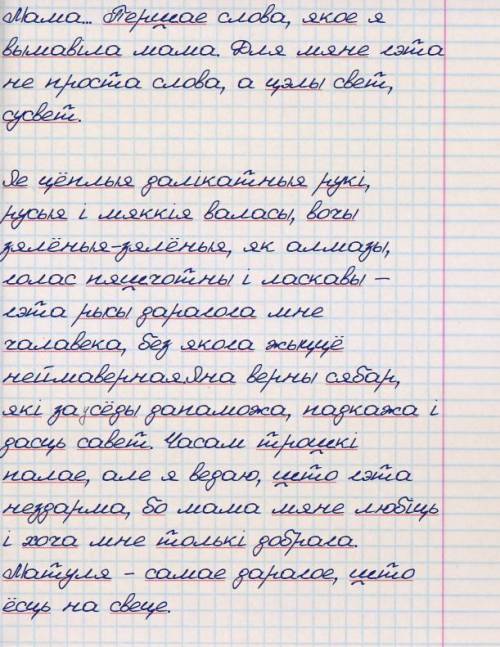 Мама... Першае слова, якое я
вымавіла мама. Для мяне гэта
не проста слова, а цэлы свет,
сусвет.
Яе цёплыя далікатныя рукі,
русыя і мяккія валасы, вочы
зялёныя-зялёныя, як алмазы,
голас пяшчотны і ласкавы –
гэта рысы дарагога мне
чалавека, без якога жыццё
неймаверная.Яна верны сябар,
які заўсёды дапаможа, падкажа і
дасць савет. Часам трошкі
палае, але я ведаю, што гэта
нездарма, бо мама мяне любіць
і хоча мне толькі добрага.
Матуля – самае дарагое, што
ёсць на свеце.